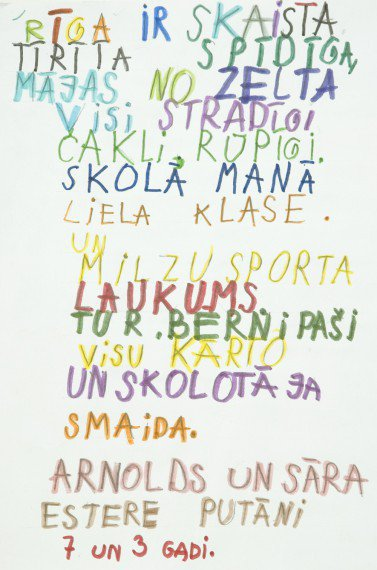 RĪGA IR SKAISTA
TĪRĪTA SPĪDĪGA,
MĀJAS NO ZELTA
VISI STRĀDĪGI
ČAKLI, RŪPĪGI.
SKOLĀ MANĀ
LIELA KLASE.
UN
MILZU SPORTA
LAUKUMS
TUR. BĒRNI PAŠI
VISU KĀRTO
UN SKOLOTĀJA
SMAIDA.
ARNOLDS UN SĀRA
ESTERE PUTĀNI
7 UN 3 GADI.